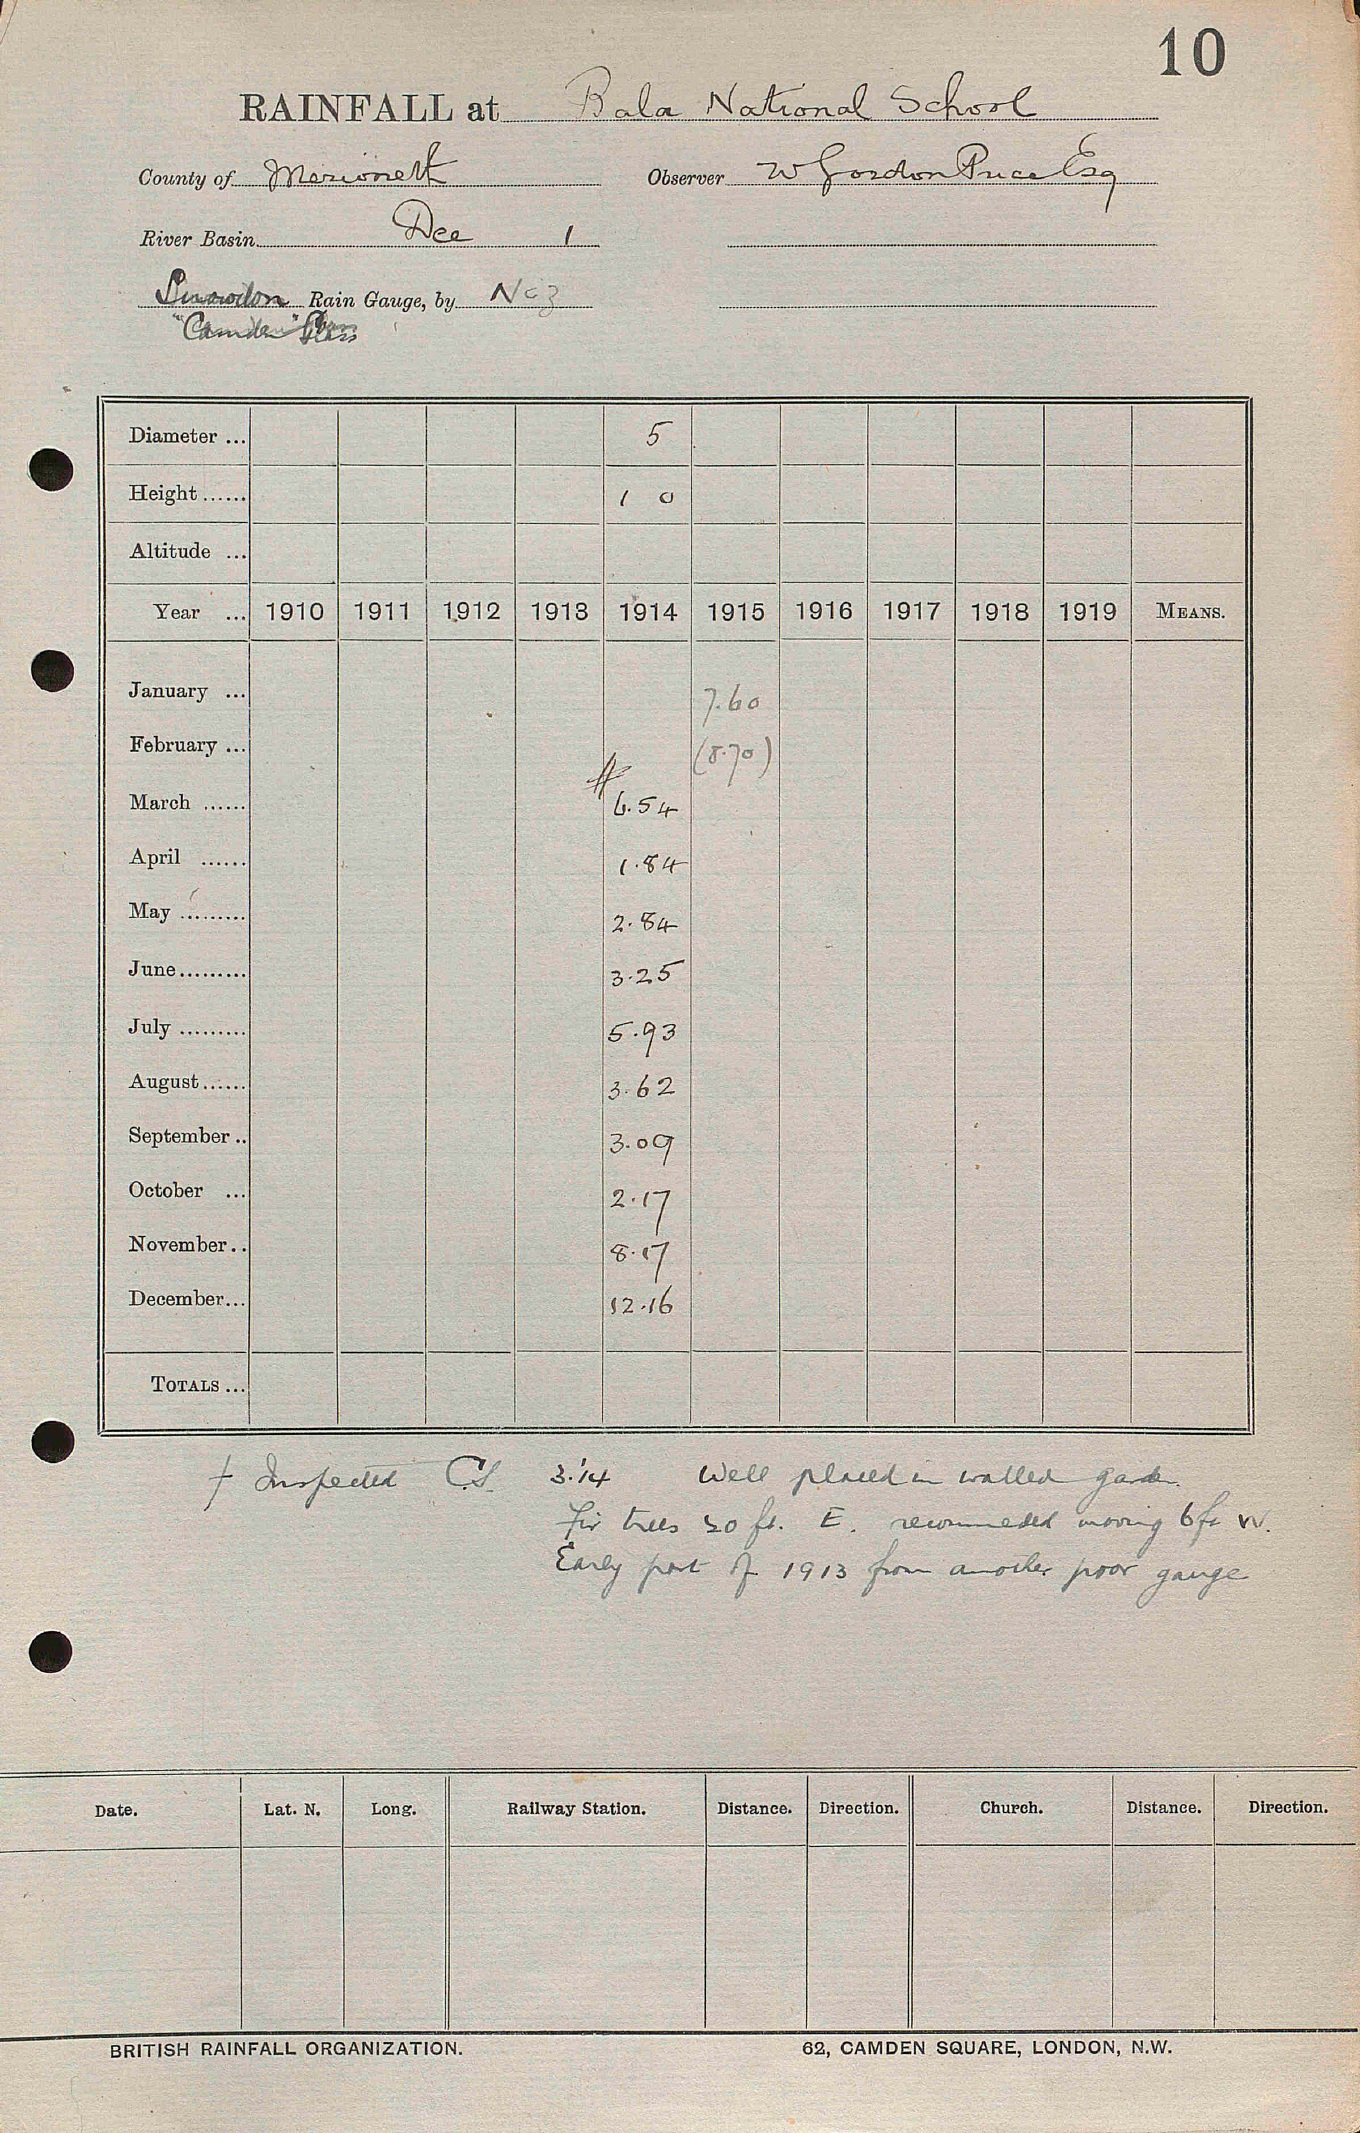 10
RAINFALL at Bala National School
County of Merioneth Observer W Gordon Price Esq
River Basin Dee 1
Snowdon Rain Gauge, by N & Z
"Camden" Glass
Diameter ... 5
Height ...... 1 0
Altitude ...
Year ... 1910 1911 1912 1913 1914 1915 1916 1917 1918 1919 MEANS.
January ... 7.60
February ... (8.70)
March ...... 6.54
April ...... 1.84
May ......... 2.84
June ......... 3.25
July ......... 5.93
August ...... 3.62
September .. 3.09
October ... 2.17
November .. 8.17
December ... 12.16
TOTALS ...
† Inspected C.S. 3.'14 Well placed in walled garden.
Fir trees 20 ft. E. recommended moving 6 ft W.
Early part of 1913 from another poor gauge
Date. Lat. N. Long. Railway Station. Distance. Direction. Church. Distance. Direction.
BRITISH RAINFALL ORGANIZATION. 62, CAMDEN SQUARE, LONDON, N.W.